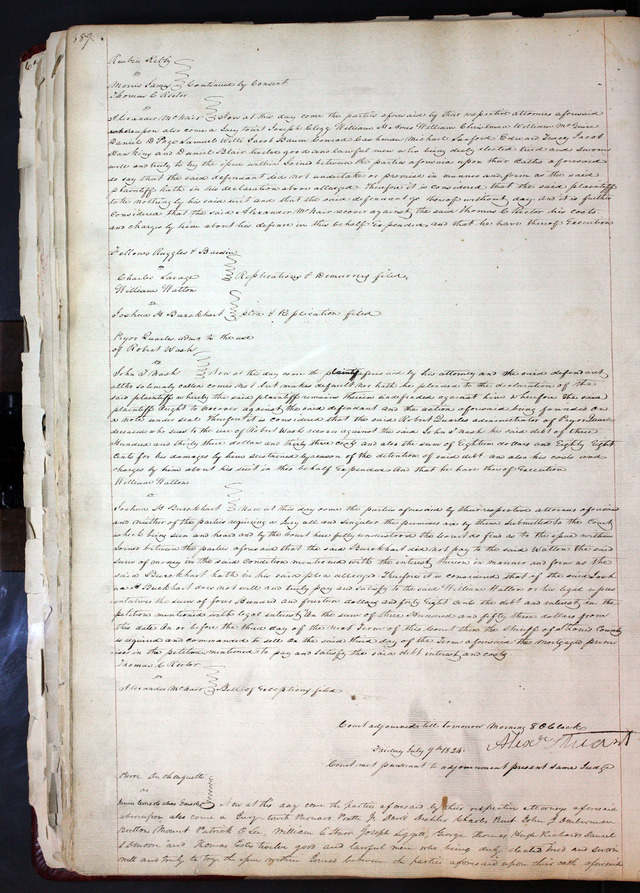 189
Reuben Kelly
vs
Morris James Continued by Consent
Thomas C Rector
vs
Alexander McNair Now at this day come the parties aforesaid by their respective attornies aforesaid
whereupon also come a Jury to wit Joseph Clegg William Holmes William Christman William McGuire
Daniel D Page Samuel Will Jacob Baum Conrad Cashman Michael Sanford Edward Tracy Jacob
Hawking and Daniel Blair twelve good and lawful men who being duly elected tried and sworn
well and truly to try the issue within Joined between the parties aforesaid upon their Oaths aforesaid
do say that the said defendant did not undertake or promise in manner and form as the said
plaintiff hath in his declaration above alleged Therefore it is considered that the said plaintiff
take nothing by his said suit and that the said defendant go thereof without day and it is further
Considered that the said Alexander McNair recover against the said Thomas C Rector his costs
and charges by him about his defence in this behalf Expended, and that he have thereof Execution
Fellows Ruggles &
vs
Charles Savage Replications & Demurrers filed.
William Walton
vs
Joshua H Burckhart plea & Replication filed
Pryor Quarles admr to the use
of Robert Wash
vs
John S Nash Now at this day came the plaintiff aforesaid by his attorney and the said defendant
altho solemnly called comes not but makes default nor hath he pleaded to the declaration of the
said plaintiff whereby the said plaintiff remains therein undefended against him Wherefore the said
plaintiff ought to recover against the said defendant and the action aforesaid being founded on
a note under seal Therefore it is considered that the said Robert Quarles administrator of Pryor Quarles
deceased who sues to the use of Robert Wash recover against the said John S Nash the said debt of three
Hundred and thirty three dollars and thirty three cents and also the sum of Eighteen dollars and Eighty Eight
Cents for his damages by him sustained by reason of the detention of said debt and also his costs and
charges by him about his suit in this behalf Expended And that he have thereof Execution
William Walton
vs
Joshua H Burckhart Now at this day come the parties aforesaid by their respective attornies aforesaid
and neither of the parties requiring a Jury all and Singular the premises are by them submitted to the Court
which being seen and heard and by the Court here fully understood the Court do find as to the issue within
Joined between the parties aforesaid that the said Burckhart did not pay to the said Walton the said
sum of money in the said Condition mentioned with the interest thereon in manner and form as the
said Burckhart hath in his said plea alleged Therefore it is considered that if the said Josh
ua H Burckhart does not well and truly pay and satisfy to the said William Walton or his legal repres
entatives the sum of four Hundred and fourteen dollars and forty Eight Cents the debt and interest in the
petition mentioned with legal interest on the sum of three Hundred and fifty three dollars from
this date On or before the third day of the next Term of this Court then the Sheriff of St Louis County
is required and commanded to sell on the said third day of the Term aforesaid the Mortgage prem
ises in the petition mentioned to pay and satisfy the said debt interest and costs
Thomas C Rector
vs
Alexander McNair Bill of Exceptions filed
Court adjourned till tomorrow Morning 8 OClock
Alexr Stuart
Friday July 9th 1824.
Court met pursuant to adjournment present same Judge
Pierre Duchouquette
vs
Now at this day come the parties aforesaid by their respective Attorneys aforesaid
whereupon also come a Jury to wit Bernard Pratte Jr David Deshler Charles Bent John J
Button Mount Patrick E Lee William C Joseph Liggett George Thomas Hugh Richards Daniel
and Thomas Estes twelve good and lawful men who being duly elected tried and sworn
well and truly to try the issue within Joined between the parties aforesaid upon their oath aforesaid